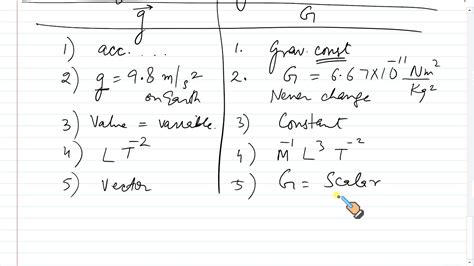 g⃗ G
1) acc. .... 1. Grav. const
2) g = 9.8 m/s² 2. G = 6.67×10⁻¹¹ Nm²/Kg²
on Earth Never change
3) Value = variable. 3) Constant
4) L T⁻² 4) M⁻¹ L³ T⁻²
5) Vector 5) G = Scalar